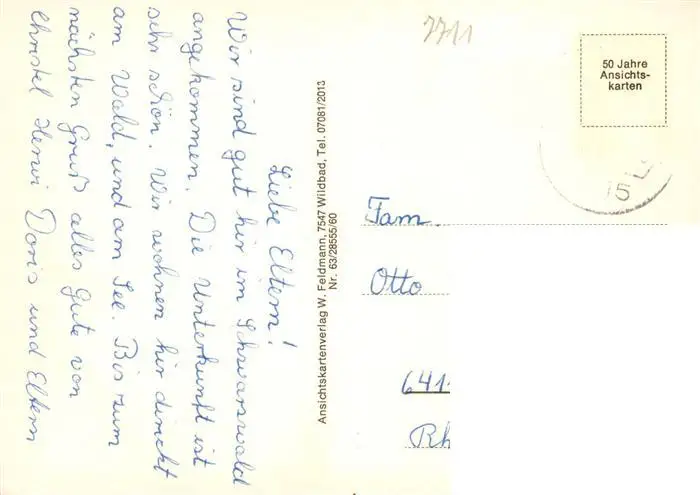 Liebe Eltern!
Wir sind gut hir im Schwarswald
angekommen. Die Unterkunft ist
sehr schön. Wir wohnen hir direckt
am Wald, und am See. Bis zum
nächsten Gruß alles Gute von
Christel Henri Doris und Eltern
Ansichtskartenverlag W. Feldmann, 7547 Wildbad, Tel. 07081/2013
Nr. 63/28555/60
7711
50 Jahre
Ansichts-
karten
15
Fam.
Otto
641
Rh